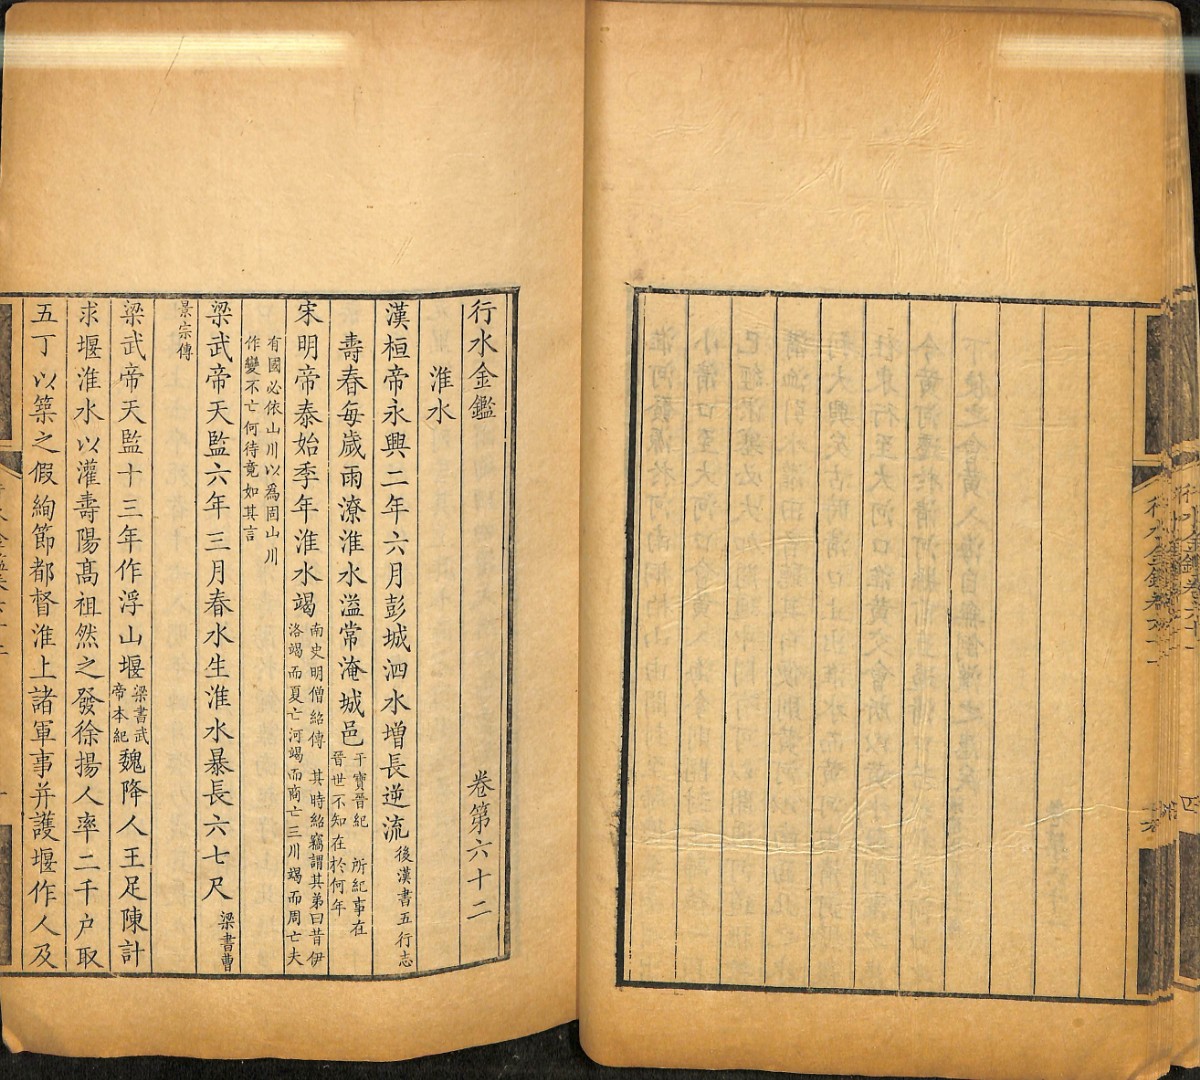 行水金鑑 卷第六十二
淮水
漢桓帝永興二年六月彭城泗水增長逆流後漢書五行志
壽春每歲雨潦淮水溢常淹城邑干寶晉紀 所紀事在晉世不知在於何年
宋明帝泰始季年淮水竭南史明僧紹傳 其時紹竊謂其弟曰昔伊洛竭而夏亡河竭而商亡三川竭而周亡夫
有國必依山川以為固山川作變不亡何待竟如其言
梁武帝天監六年三月春水生淮水暴長六七尺梁書曹
景宗傳
梁武帝天監十三年作浮山堰梁書武帝本紀魏降人王足陳計
求堰淮水以灌壽陽高祖然之發徐揚人率二千戶取
五丁以築之假絢節都督淮上諸軍事并護堰作人及